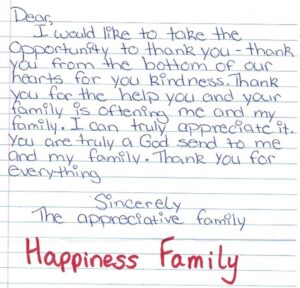 Dear,
I would like to take the
Opportunity to thank you - thank
you from the bottom of our
hearts for you kindness. Thank
you for the help you and your
family is oftening me and my
family. I can truly appreciate it.
You are truly a God send to me
and my family. Thank you for
everything
Sincerely
The appreciative family
Happiness Family